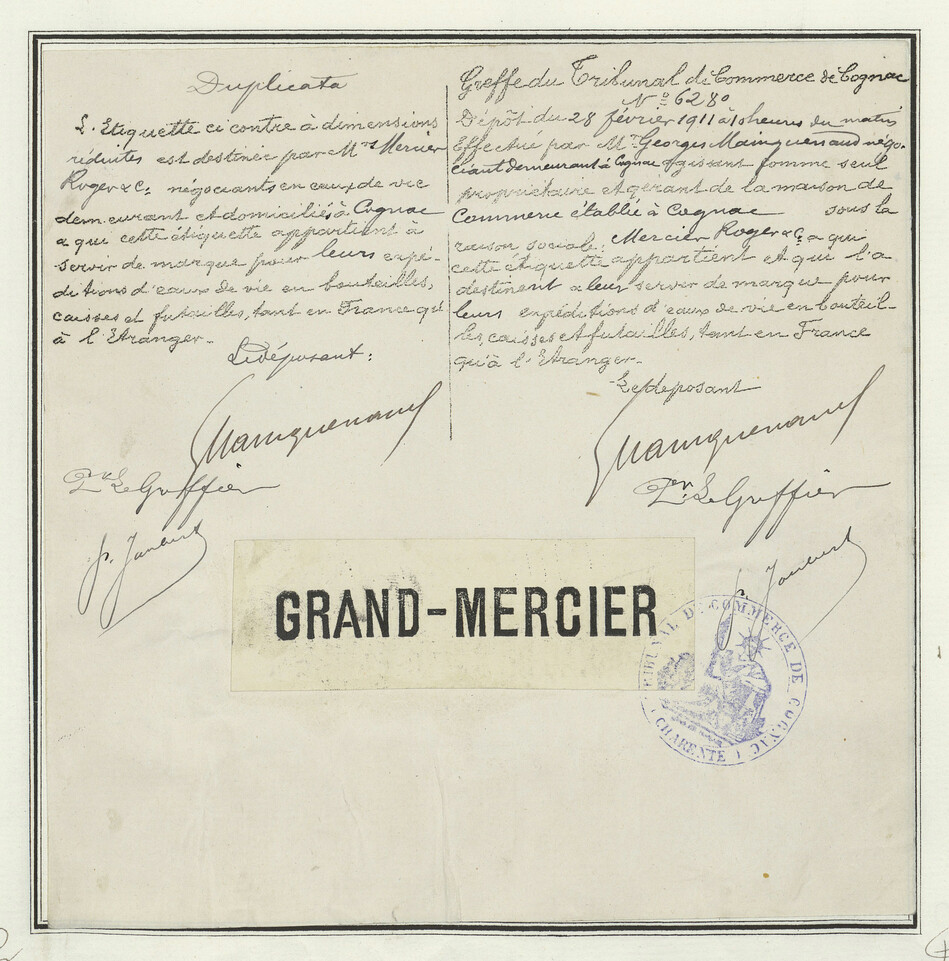 Duplicata
L'Etiquette ci contre à dimensions
réduites est destinée par Mrs Mercier
Roger & Cie négociants en eaux de vie
demeurant et domiciliés à Cognac
a qui cette étiquette appartient à
servir de marque pour leurs expé-
ditions d'eaux de vie en bouteilles,
caisses et futailles, tant en France qu'
à l'Etranger.
Le déposant:
Mainguenaud
Pr Le Greffier
Greffe du Tribunal de Commerce de Cognac
No 6280
Dépôt du 28 février 1911 à 10 heures du matin
Effectué par Mr Georges Mainguenaud négo-
ciant demeurant à Cognac agissant comme seul
propriétaire et gérant de la maison de
Commerce établie à Cognac sous la
raison sociale: Mercier Roger & Cie a qui
cette étiquette appartient et qui l'a
destinent a leur servir de marque pour
leurs expéditions d'eaux de vie en bouteil-
les, caisses et futailles, tant en France
qu'à l'Etranger.
Le deposant
Mainguenaud
Pr Le Greffier
GRAND-MERCIER
TRIBUNAL DE COMMERCE DE COGNAC
CHARENTE